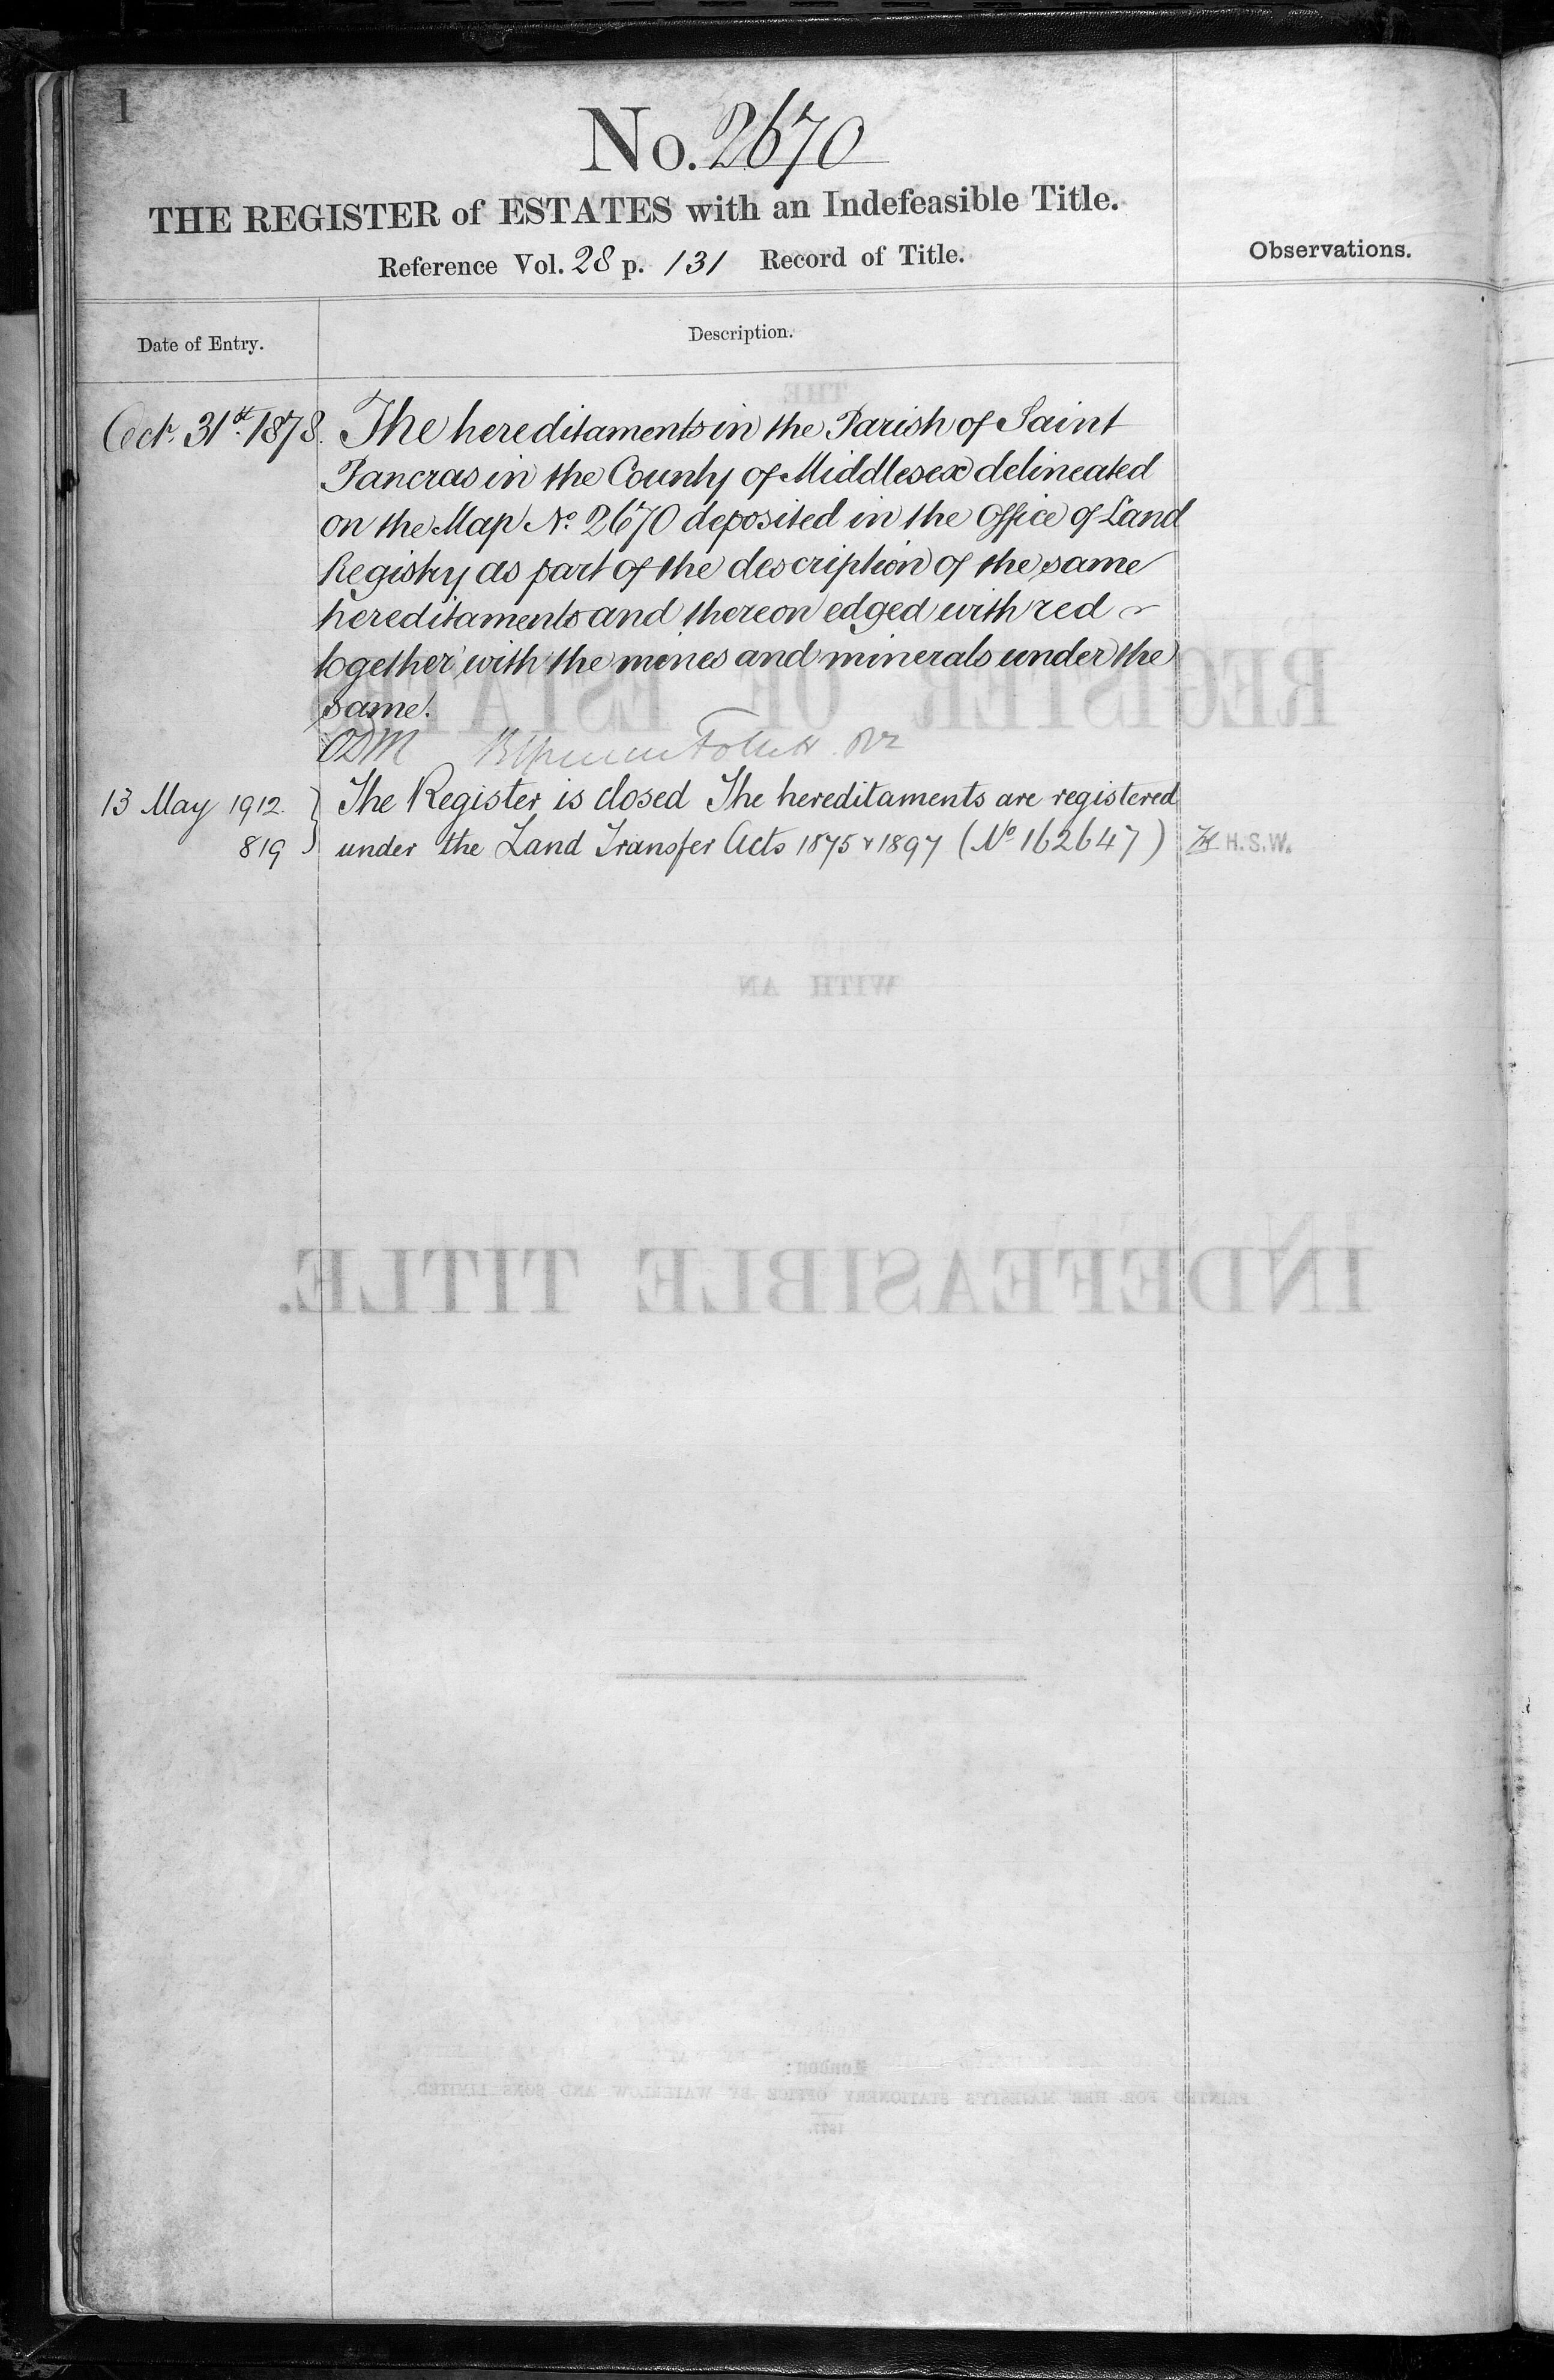 1
No. 2670
THE REGISTER of ESTATES with an Indefeasible Title.
Reference Vol. 28 p. 131 Record of Title.
Observations.
Date of Entry.
Description.
Oct. 31st 1878. The hereditaments in the Parish of Saint
Pancras in the County of Middlesex delineated
on the Map No. 2670 deposited in the Office of Land
Registry as part of the description of the same
hereditaments and thereon edged with red
together with the mines and minerals under the
same.
ODM
13 May 1912 } The Register is closed The hereditaments are registered
819 } under the Land Transfer Acts 1875 & 1897 (No 162647) H.S.W.
THE
REGISTER OF ESTATES
WITH AN
INDEFEASIBLE TITLE.
London:
PRINTED FOR HER MAJESTY'S STATIONERY OFFICE BY WATERLOW AND SONS LIMITED.
1877.